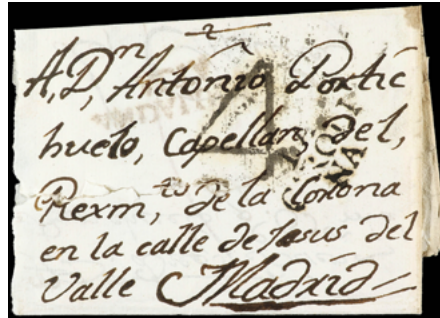 A, Dn, Antonio Portic
huelo, Capellan, del,
Rexmto, de la Corona
en la calle de Jesus del
Valle Madrid
4